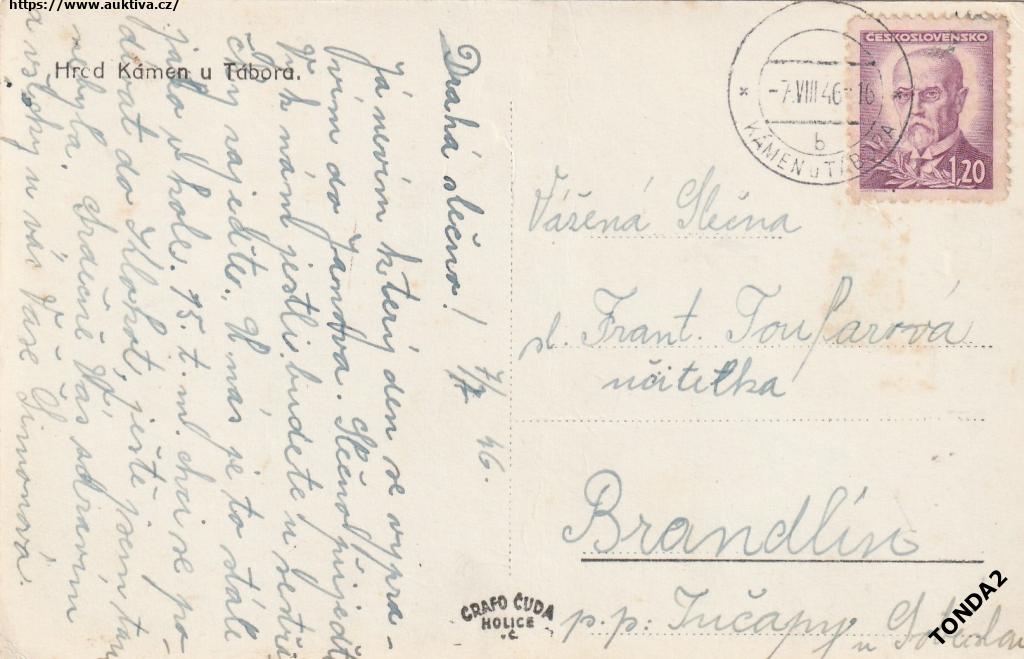 https://www.auktiva.cz/
Hrad Kámen u Tábora.
Drahá slečno!
7/7 46.
Já nevím který den se vypra-
vím do Jandova. Slečno přijeďte
k nám jestli budete u sestři
čky zajeďte. U nás je to stále
jako v hole. 15. t. m. chci se po-
dívat do Klokot, ještě jsem tam
nebyla. Srdečně Vás zdravím
a všecky u vás Vaše Šimonová.
ČESKOSLOVENSKO
1,20
-7.VIII 46-16
b
KÁMEN u TÁBORA
Vážená Slečna
sl. Frant. Toufarová
učitelka
Brandlín
p. p. Tučapy u Soběslav
GRAFO ČUDA
HOLICE
v Č.
TONDA2